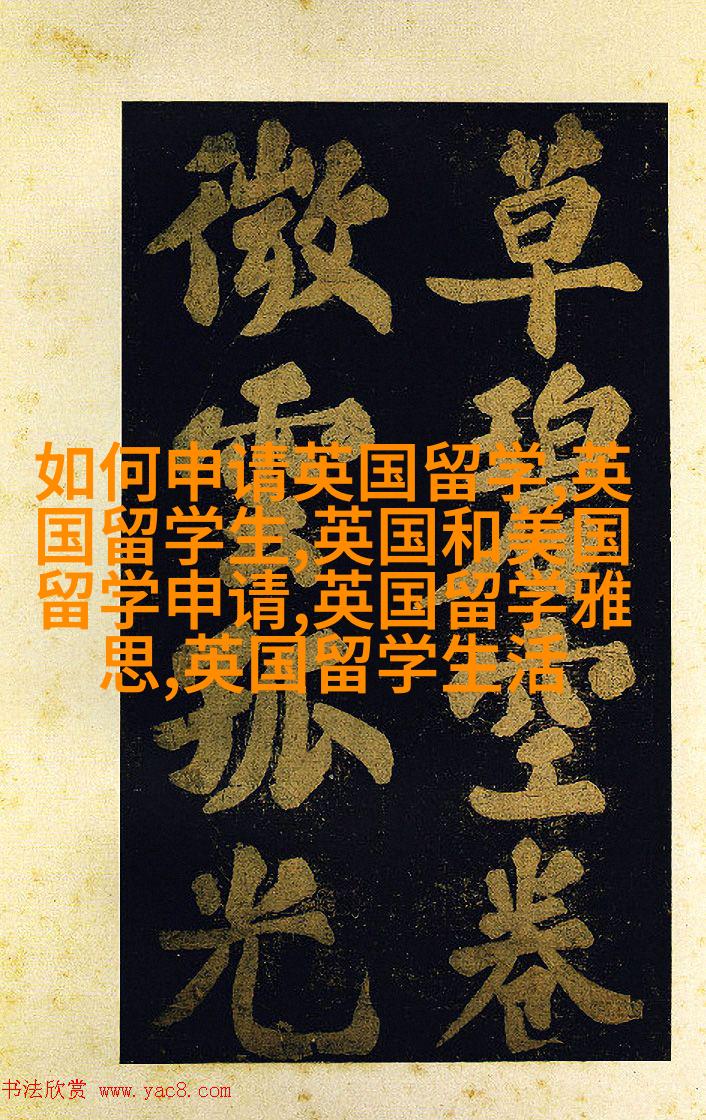 草碧空卷
微雲孤光
如何申请英国留学,英
国留学生,英国和美国
留学申请,英国留学雅
思,英国留学生活
书法欣赏 www.yac8.com